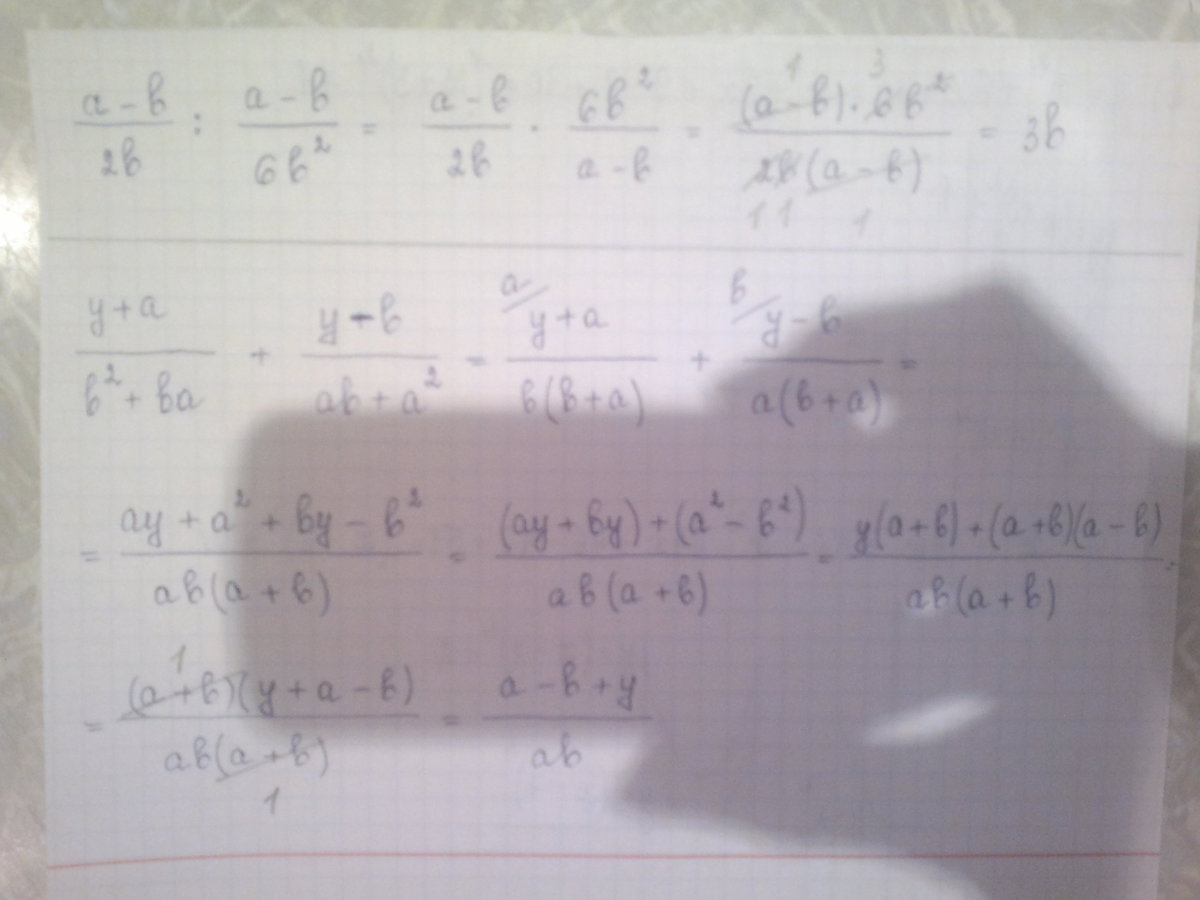 (a-b)/(2b) : (a-b)/(6b²) = (a-b)/(2b) · (6b²)/(a-b) = ((a-b)·6b²)/(2b(a-b)) = 3b
(y+a)/(b²+ba) + (y-b)/(ab+a²) = (a/ y+a)/(b(b+a)) + (b/ y-b)/(a(b+a)) =
= (ay+a²+by-b²)/(ab(a+b)) = ((ay+by)+(a²-b²))/(ab(a+b)) = (y(a+b)+(a+b)(a-b))/(ab(a+b)) =
= ((a+b)(y+a-b))/(ab(a+b)) = (a-b+y)/(ab)